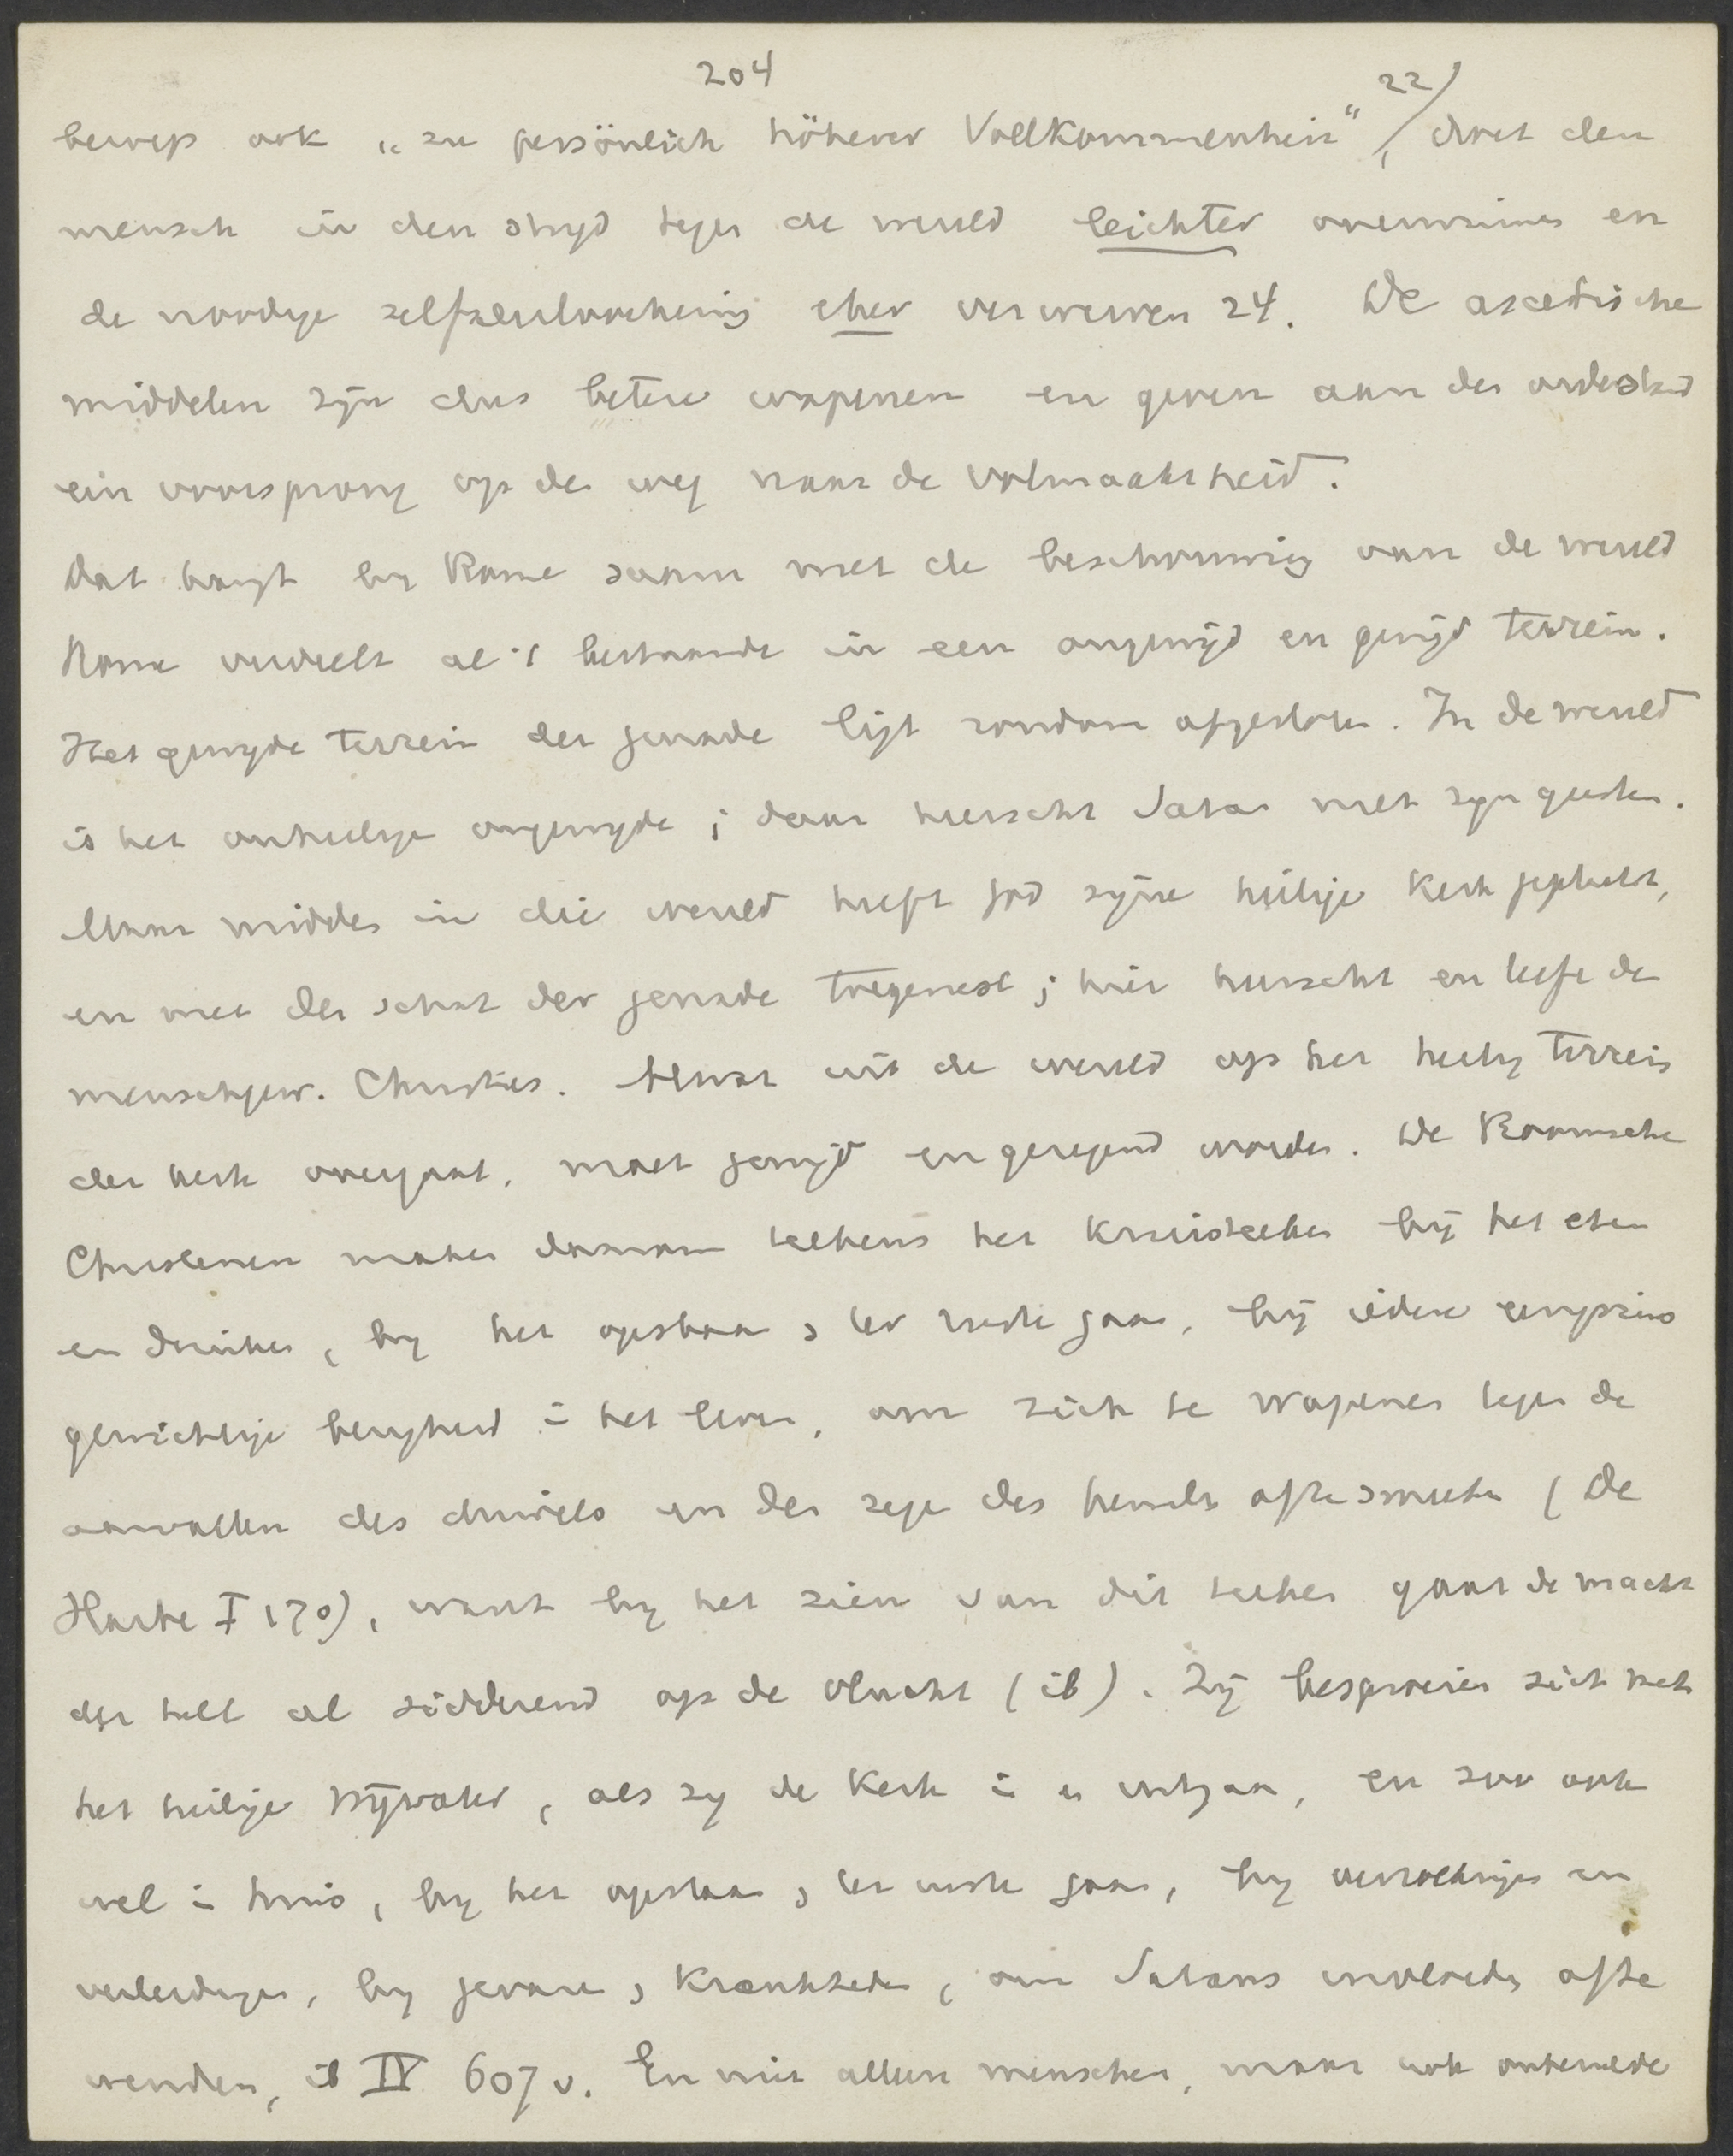 204
22/
beweegt ook "zu persönlich höherer Vollkommenheit", doet den
mensch in den strijd tegen de wereld leichter overwinnen en
de noodige zelfverloochening eher verwerven 24. De ascetische
middelen zijn dus betere wapenen en geven aan den ordestand
een voorsprong op den weg naar de volmaaktheid.
Dat hangt bij Rome saam met de beschouwing van de wereld
Rome verdeelt al 't bestaande in een ongewijd en gewijd terrein.
Het gewijde terrein der genade ligt rondom afgesloten. In de wereld
is het onheilige ongewijde; daar heerscht Satan met zijn geesten.
Maar midden in die wereld heeft God zijne heilige Kerk geplaatst,
en met den schat der genade toegerust; hier heerscht en leeft de
menschgew. Christus. Al wat uit de wereld op het heilig terrein
der kerk overgaat, moet gewijd en gezegend worden. De Roomsche
Christenen maken daarom telkens het Kruisteeken bij het eten
en drinken, bij het opstaan, ter ruste gaan, bij iedere eenigszins
gewichtige bezigheid in het leven, om zich te wapenen tegen de
aanvallen des duivels en den zegen des hemels af te smeeken (De
Harbe I 170), want bij het zien van dit teeken gaat de macht
der hel al sidderend op de vlucht (ib). Zij besproeien zich met
het heilige wijwater, als zij de Kerk in en uitgaan, en zoo ook
wel in huis, bij het opstaan, ter ruste gaan, bij verzoekingen en
verleidingen, bij gevaren, krankheden, om Satans invloeden af te
wenden, ib IV 607 v. En niet alleen menschen, maar ook onbezielde